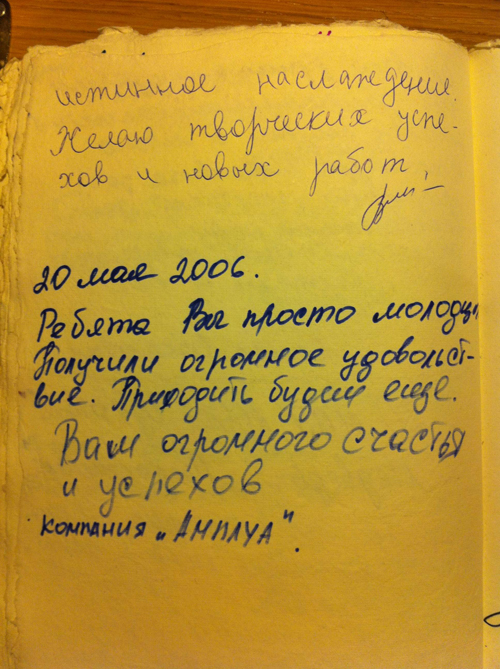 истинное наслаждение.
Желаю творческих успе-
хов и новых работ
20 мая 2006.
Ребята Вы просто молодцы
Получили огромное удовольст-
вие. Приходить будем еще.
Вам огромного счастья
и успехов
компания „АМПЛУА".